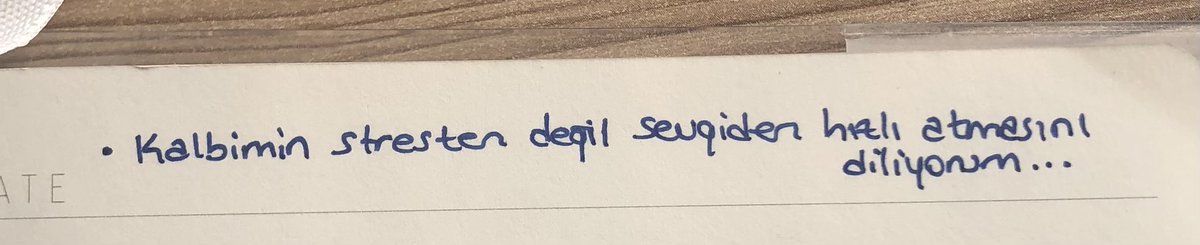 • Kalbimin stresten değil sevgiden hızlı atmasını
diliyorum...
ATE